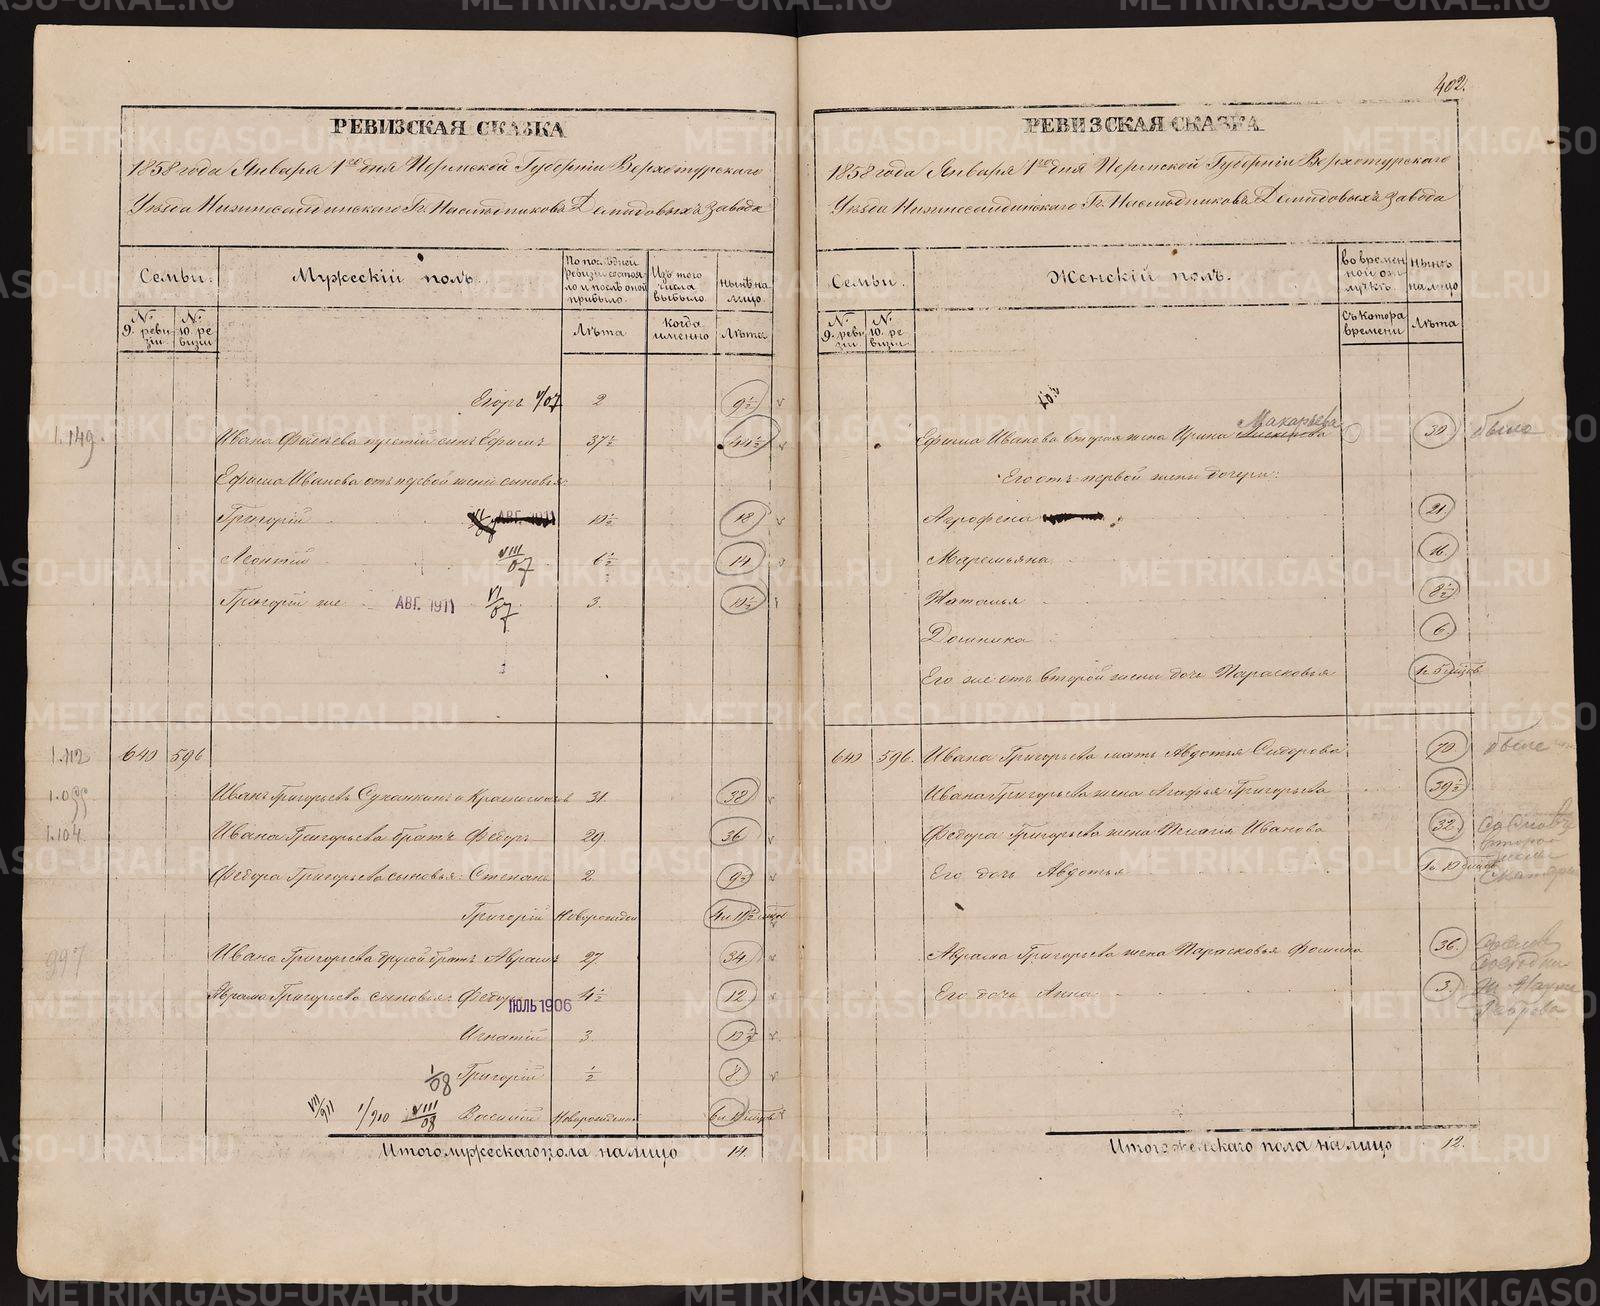 402.
РЕВИЗСКАЯ СКАЗКА
1858 года Января 1го дня Пермской Губерніи Верхотурскаго
Уѣзда Нижнесалдинскаго Гг. Наслѣдниковъ Демидовыхъ завода
Семьи.
Мужескій полъ.
По послѣдней ревизіи состояло и послѣ оной прибыло.
Изъ того числа выбыло
нынѣ на лицо
№ 9. ревизіи
№ 10. ревизіи
Лѣта
когда именно
Лѣта
Егоръ 2 9½
1.149. Ивана сынъ Ефимъ 37½ 44½
Ефима Иванова отъ первой жены сыновья:
Григорій АВГ. 1911 18
Леонтій VIII/07 6½ 14
Григорій же АВГ. 1911 VI/07 3. 10½
1.112 640 596
Иванъ Григорьевъ 31. 38
1.104. Ивана Григорьева братъ Федоръ 29. 36
Федора Григорьева сыновья: Степанъ 2 9½
Григорій Новорожден
997 Ивана Григорьева другой братъ Аврамъ 27. 34
Аврама Григорьева сыновья: Федоръ ІЮЛЬ 1906 4½ 12
Игнатій 3. 10½
1/08 Григорій ½ 8.
VII/911 1/910 VIII/08 Василій Новорожденной
Итого мужескаго пола на лицо 14.
РЕВИЗСКАЯ СКАЗКА
1858 года Января 1го дня Пермской Губерніи Верхотурскаго
Уѣзда Нижнесалдинскаго Гг. Наслѣдниковъ Демидовыхъ завода
Семьи.
Женскій полъ.
во временной отлучкѣ.
нынѣ на лицо
№ 9. ревизіи
№ 10. ревизіи
Съ котора времени
Лѣта
Макарьева
Ефима Иванова вторая жена Ирина 39
Его отъ первой жены дочери:
Агрофена 21.
Маремьяна 16.
Наталья 8½
Домника 6.
Его же отъ второй жены дочь Парасковья
640 596. Ивана Григорьева мать Авдотья Сидорова 70.
Ивана Григорьева жена Агафья Григорьева 39½
Федора Григорьева жена Пелагія Иванова 32.
Его дочь Авдотья
Аврама Григорьева жена Парасковья Фомина 36.
Его дочь Анна 3.
Итого женскаго пола на лицо 12.
METRIKI.GASO-URAL.RU